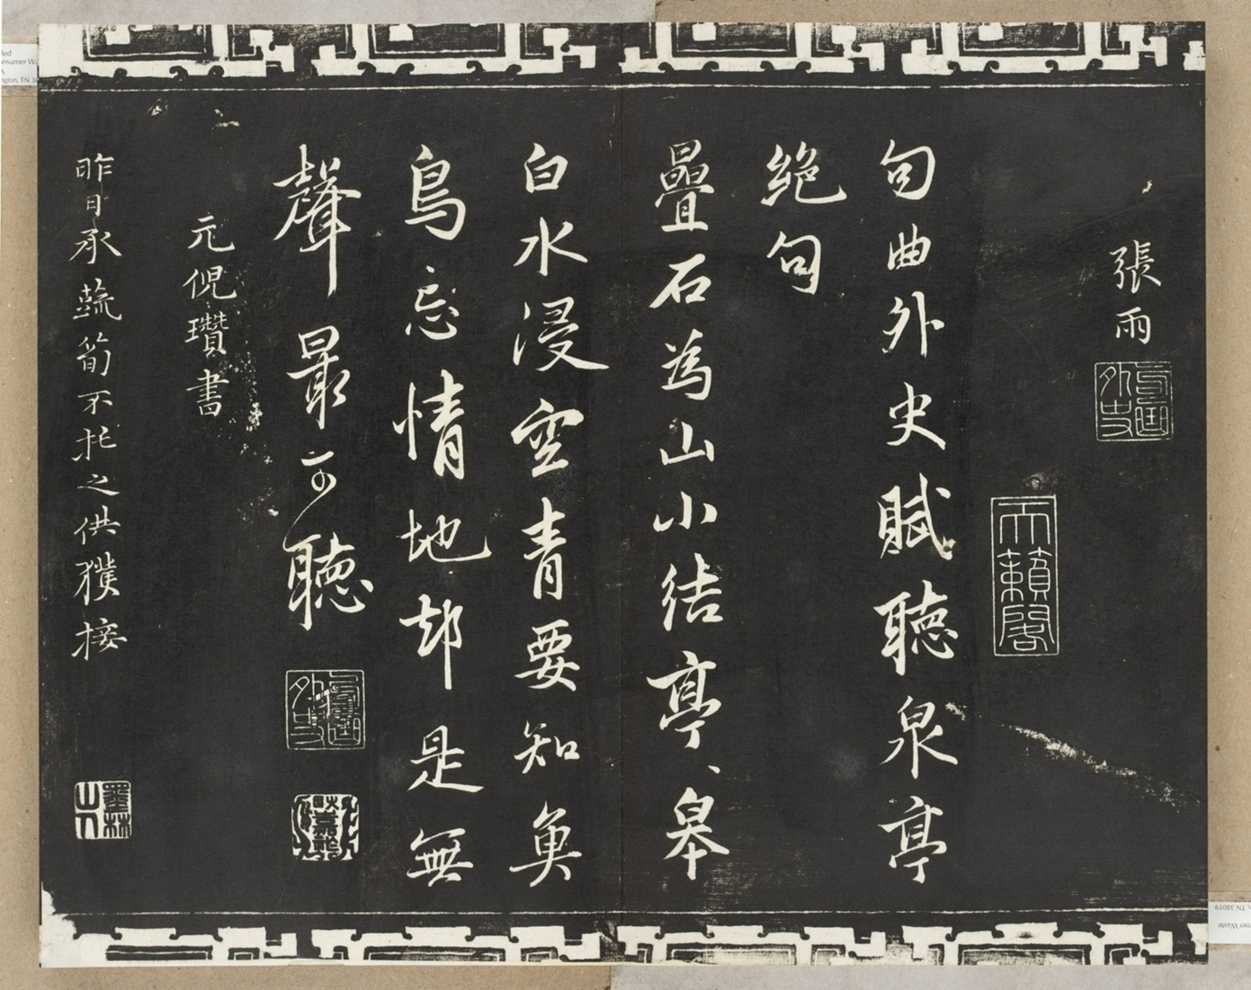 張雨
句曲外史
天籟閣
句曲外史賦聽泉亭
絕句
疊石為山小結亭、皋
白水浸空青要知魚
鳥忘情地却是無
聲最可聽
元倪瓚書
昨日承蔬筍不托之供獲接
墨林
山人